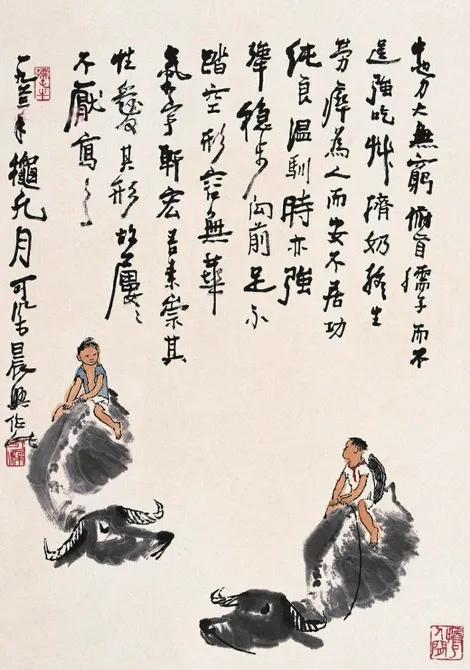 牛也力大無窮俯首孺子而不
逞強吃艸擠奶終生
勞瘁為人而安不居功
純良溫馴時亦強
犟穩步向前足不
踏空形容無華
氣宇軒宏吾素崇其
性愛其形故屢〻
不厭寫之
一九六二年龝九月可染晨興作此